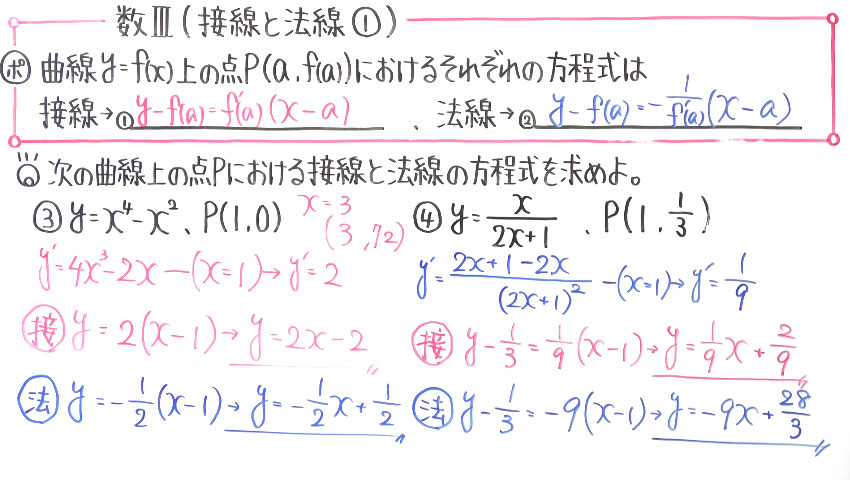 数Ⅲ(接線と法線①)
㋭ 曲線y=f(x)上の点P(a, f(a))におけるそれぞれの方程式は
接線→① y-f(a)=f'(a)(x-a) 、法線→② y-f(a)=-1/f'(a)(x-a)
次の曲線上の点Pにおける接線と法線の方程式を求めよ。
③ y=x⁴-x²、P(1,0) x=3 (3,72)
y'=4x³-2x-(x=1)→y'=2
接 y=2(x-1)→y=2x-2
法 y=-1/2(x-1)→y=-1/2x+1/2
④ y=x/(2x+1)、P(1, 1/3)
y'=(2x+1-2x)/(2x+1)²-(x=1)→y'=1/9
接 y-1/3=1/9(x-1)→y=1/9x+2/9
法 y-1/3=-9(x-1)→y=-9x+28/3